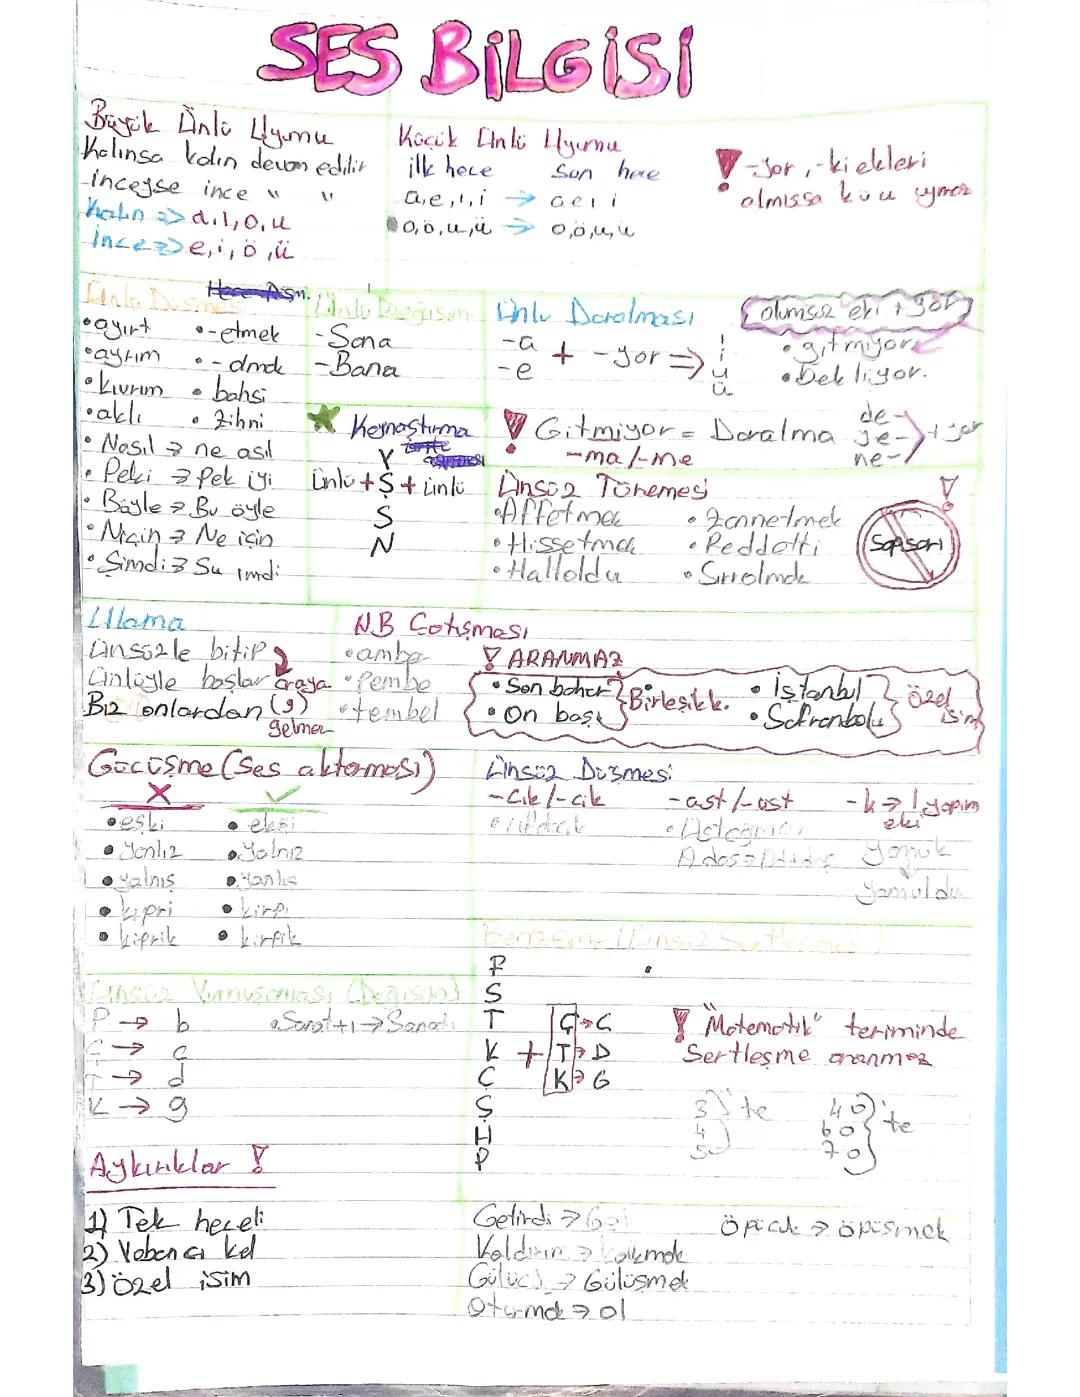 SES BİLGİSİ
Büyük Ünlü Uyumu
Kalınsa kalın devam edilir
-inceyse ince " "
Kalın => a,ı,o,u
İnce => e,i,ö,ü
Küçük Ünlü Uyumu
ilk hece son hece
a,e,ı,i → a e ı i
o,ö,u,ü → o,ö,u,ü
! -yor, -ki ekleri
almışsa k ü u uymaz
Ünlü Düşmesi
•ayırt •-etmek
•ayrım •-olmak
•kıvrım •bahsi
•aklı •Zihni
•Nasıl → ne asıl
•Peki → Pek iyi
•Böyle → Bu öyle
•Niçin → Ne için
•Şimdi → Şu imdi
Ünlü Değişim
-Sana
-Bana
Kaynaştırma
Y
Ünlü + Ş + Ünlü
S
N
Ünlü Daralması
-a
-e + -yor => ı i u ü
olumsuz eki + yor
•gitmiyor
•Bekliyor.
! Gitmiyor = Daralma
-ma/-me
de-
ye- + yor
ne-
Ünsüz Türemesi
•Affetmek •Zannetmek
•Hissetmek •Reddetti
•Halloldu •Sırrolmak
! Sapsarı
Ulama
Ünsüzle bitip
Ünlüyle başlar araya
Biz onlardan (g)
gelmez
N.B Çatışması
•amba
•Pembe
•tembel
! ARANMAZ
•Son bahar
•On başı
Birleşik k.
•İstanbul
•Safranbolu
özel isim
Göçüşme (Ses aktarması)
X ✓
•eşki •ekşi
•Yanlız •Yalnız
•yalnış •Yanlış
•kipri •kirpi
•kiprik •kirpik
Ünsüz Düşmesi
-cık/-cik -ast/-üst -k → 1 yapım
eki
Yamuk
Yamuldu
Benzeşme (Ünsüz Sertleşmesi)
F
S
T
K
Ç
Ş
H
P
+
Ç → C
T → D
K → G
! "Matematik" teriminde
Sertleşme aranmaz
3
4
5
'te
40
60
70
'te
Ünsüz Yumuşaması (Değişim)
P → b
Ç → c
T → d
K → g
•Sanat+ı → Sanatı
Aykırılıklar !
1) Tek heceli
2) Yabancı kel
3) özel isim
Getirdi → Gel
Kaldırım → kalkmak
Gülücü → Gülüşmek
Oturmak → ol
Öpücük → öpüşmek